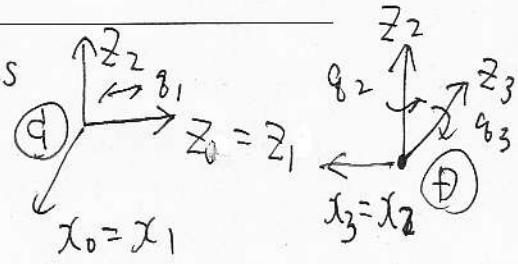 s
Z₂
q₁
Z₀ = Z₁
x₀ = x₁
Z₂
q₂
Z₃
q₃
x₃ = x₂